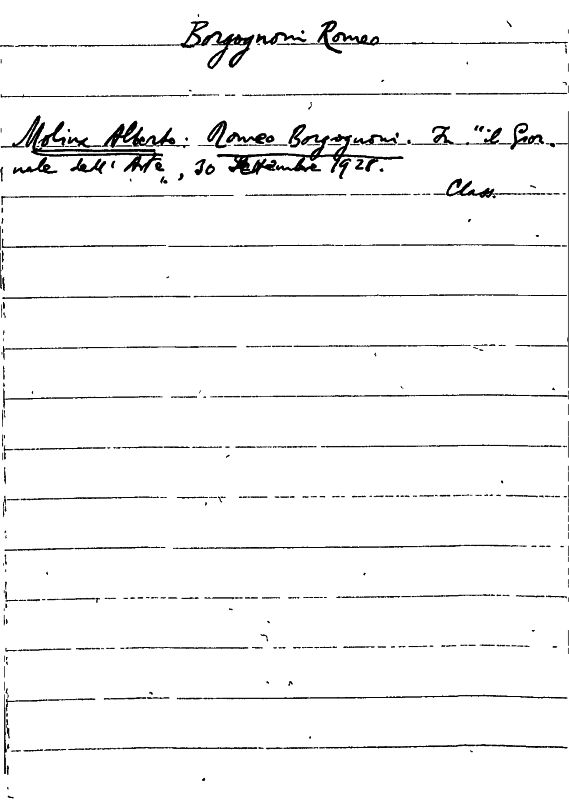 Borgognoni Romeo
Molina Alberto. Romeo Borgognoni. In "il Gior-
nale dell'Arte", 30 Settembre 1928.
Class.